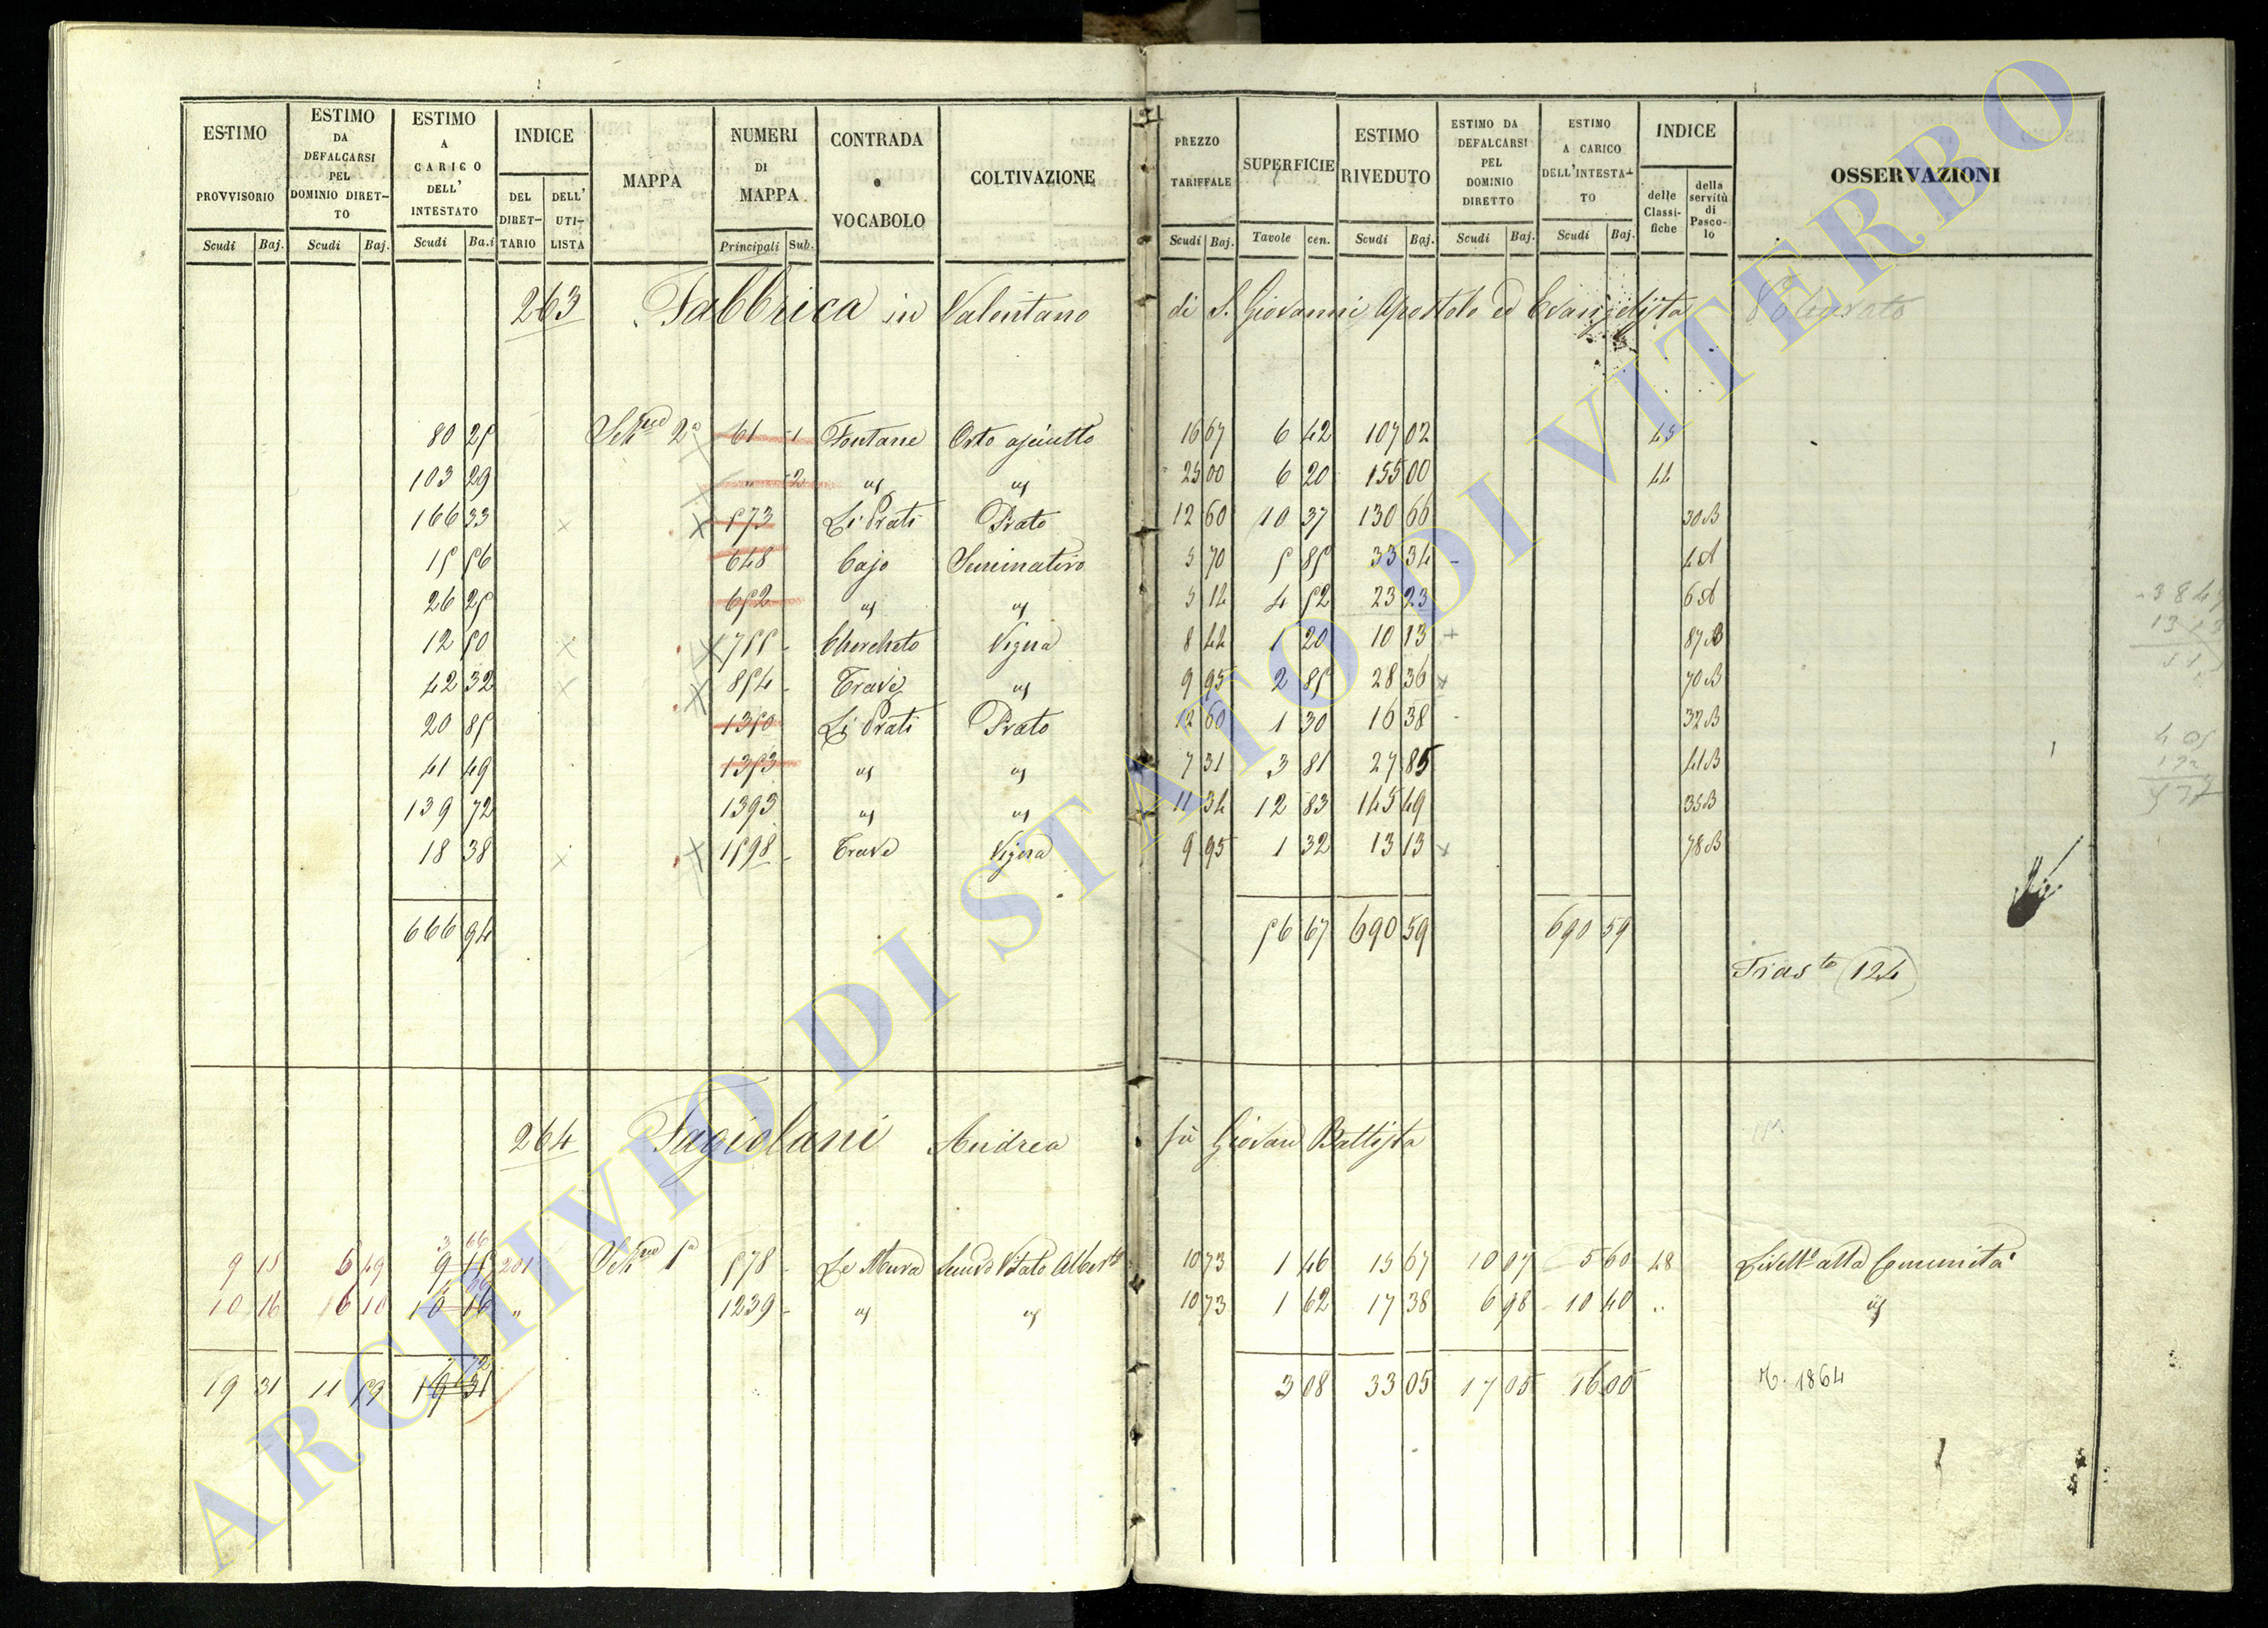 ESTIMO PROVVISORIO | ESTIMO DA DEFALCARSI PEL DOMINIO DIRET-TO | ESTIMO A CARICO DELL' INTESTATO | INDICE | MAPPA | NUMERI DI MAPPA | CONTRADA o VOCABOLO | COLTIVAZIONE | PREZZO TARIFFALE | SUPERFICIE | ESTIMO RIVEDUTO | ESTIMO DA DEFALCARSI PEL DOMINIO DIRETTO | ESTIMO A CARICO DELL'INTESTA-TO | INDICE | OSSERVAZIONI
DEL DIRET-TARIO | DELL' UTI-LISTA | delle Classi-fiche | della servitù di Pasco-lo
Scudi | Baj. | Scudi | Baj. | Scudi | Ba.i | Principali | Sub. | Scudi | Baj. | Tavole | cen. | Scudi | Baj. | Scudi | Baj. | Scudi | Baj.
263 Fabbrica in Valentano di S. Giovanni Apostolo ed Evangelista
80 25 | 2a | 61 | 1 | Fontane | Orto asciutto | 16 67 | 6 42 | 107 02 | 45
103 29 | " | 2 | id | id | 25 00 | 6 20 | 155 00 | 44
166 33 | 573 | Li Prati | Prato | 12 60 | 10 37 | 130 66 | 30 B
15 56 | 648 | Cajo | Seminativo | 5 70 | 5 85 | 33 34 | 4 A
26 25 | 652 | id | id | 5 14 | 4 52 | 23 23 | 6 A
12 50 | 755 | id | Vigna | 8 44 | 1 20 | 10 13 | 87 B
42 32 | 854 | Trave | id | 9 95 | 2 85 | 28 36 | 70 B
20 85 | 1350 | Li Prati | Prato | 12 60 | 1 30 | 16 38 | 32 B
41 49 | 1353 | id | id | 7 31 | 3 81 | 27 85 | 41 B
139 72 | 1393 | id | id | 11 34 | 12 83 | 145 49 | 35 B
18 38 | 1598 | Trave | Vigna | 9 95 | 1 32 | 13 13 | 78 B
666 94 | 56 67 | 690 59 | 690 59
Trasto (124)
264 Fagiolani Andrea fù Giovan Battista
9 15 | 5 49 | 9 15 | 3 66 | 201 | 1a | 578 | Le Mura | 10 73 | 1 46 | 15 67 | 10 07 | 5 60 | 48 | Livello alla Comunità
10 16 | 6 10 | 10 16 | " | 1239 | id | id | 10 73 | 1 62 | 17 38 | 6 98 | 10 40 | " | id
19 31 | 11 59 | 19 31 | 3 08 | 33 05 | 17 05 | 16 00 | 1864
ARCHIVIO DI STATO DI VITERBO